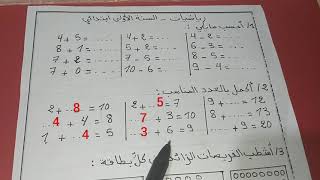 رياضيات - السنة الأولى ابتدائي
1/ أحسب مايلي :
4 + 5 = .... 4 + 2 = .... 4 - 2 = ....
8 + 1 = .... 5 + 2 = .... 6 - 3 = ....
7 + 2 = .... 7 - 5 = .... 9 - 4 = ....
7 + 0 = .... 10 - 6 = .... 8 - 4 = ....
2/ أكمل بالعدد المناسب :
2 + 8 = 10 2 + 5 = 7 9 + .... = 12
4 + 4 = 8 7 + 3 = 10 8 + .... =
1 + 4 = 5 3 + 6 = 9 .... + 9 = 20
3/ أشطب القريصات في كل بطاقة :